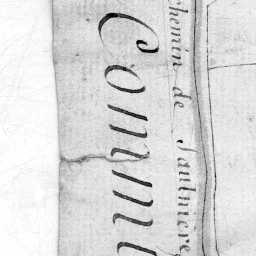 chemin de Saulniere
Comm